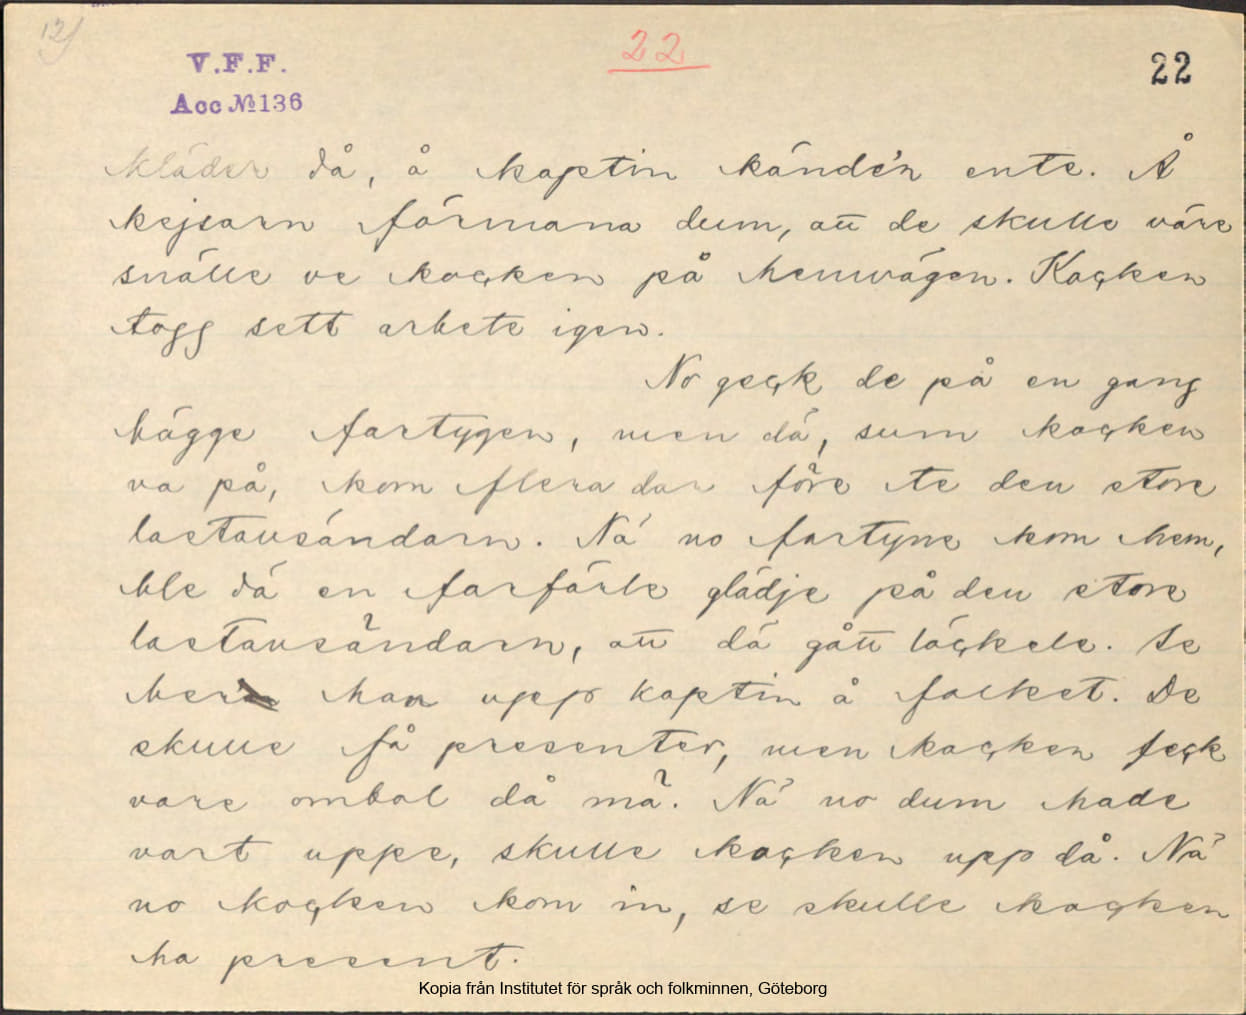 12)
V.F.F.
Acc № 136
22
22
kläder då, å kaptin kände'n ente. Å
kejsarn förmana dum, att de skulle väre
snälle ve kocken på hemvägen. Kocken
togg sett arbete igen.
No geck de på en gang
bägge fartygen, men dä, sum kocken
va på, kom flera dar före te den store
lastavsändarn. Nä no fartyne kom hem,
ble dä en farfärle glädje på den store
lastavsändarn, att dä gått löckele. Se
ber han upp kaptin å falket. De
skulle få presenter, men kocken feck
vare ombol då mä. Nä no dum hade
vart uppe, skulle kocken upp då. Nä
no kocken kom in, se skulle kocken
ha present.
Kopia från Institutet för språk och folkminnen, Göteborg